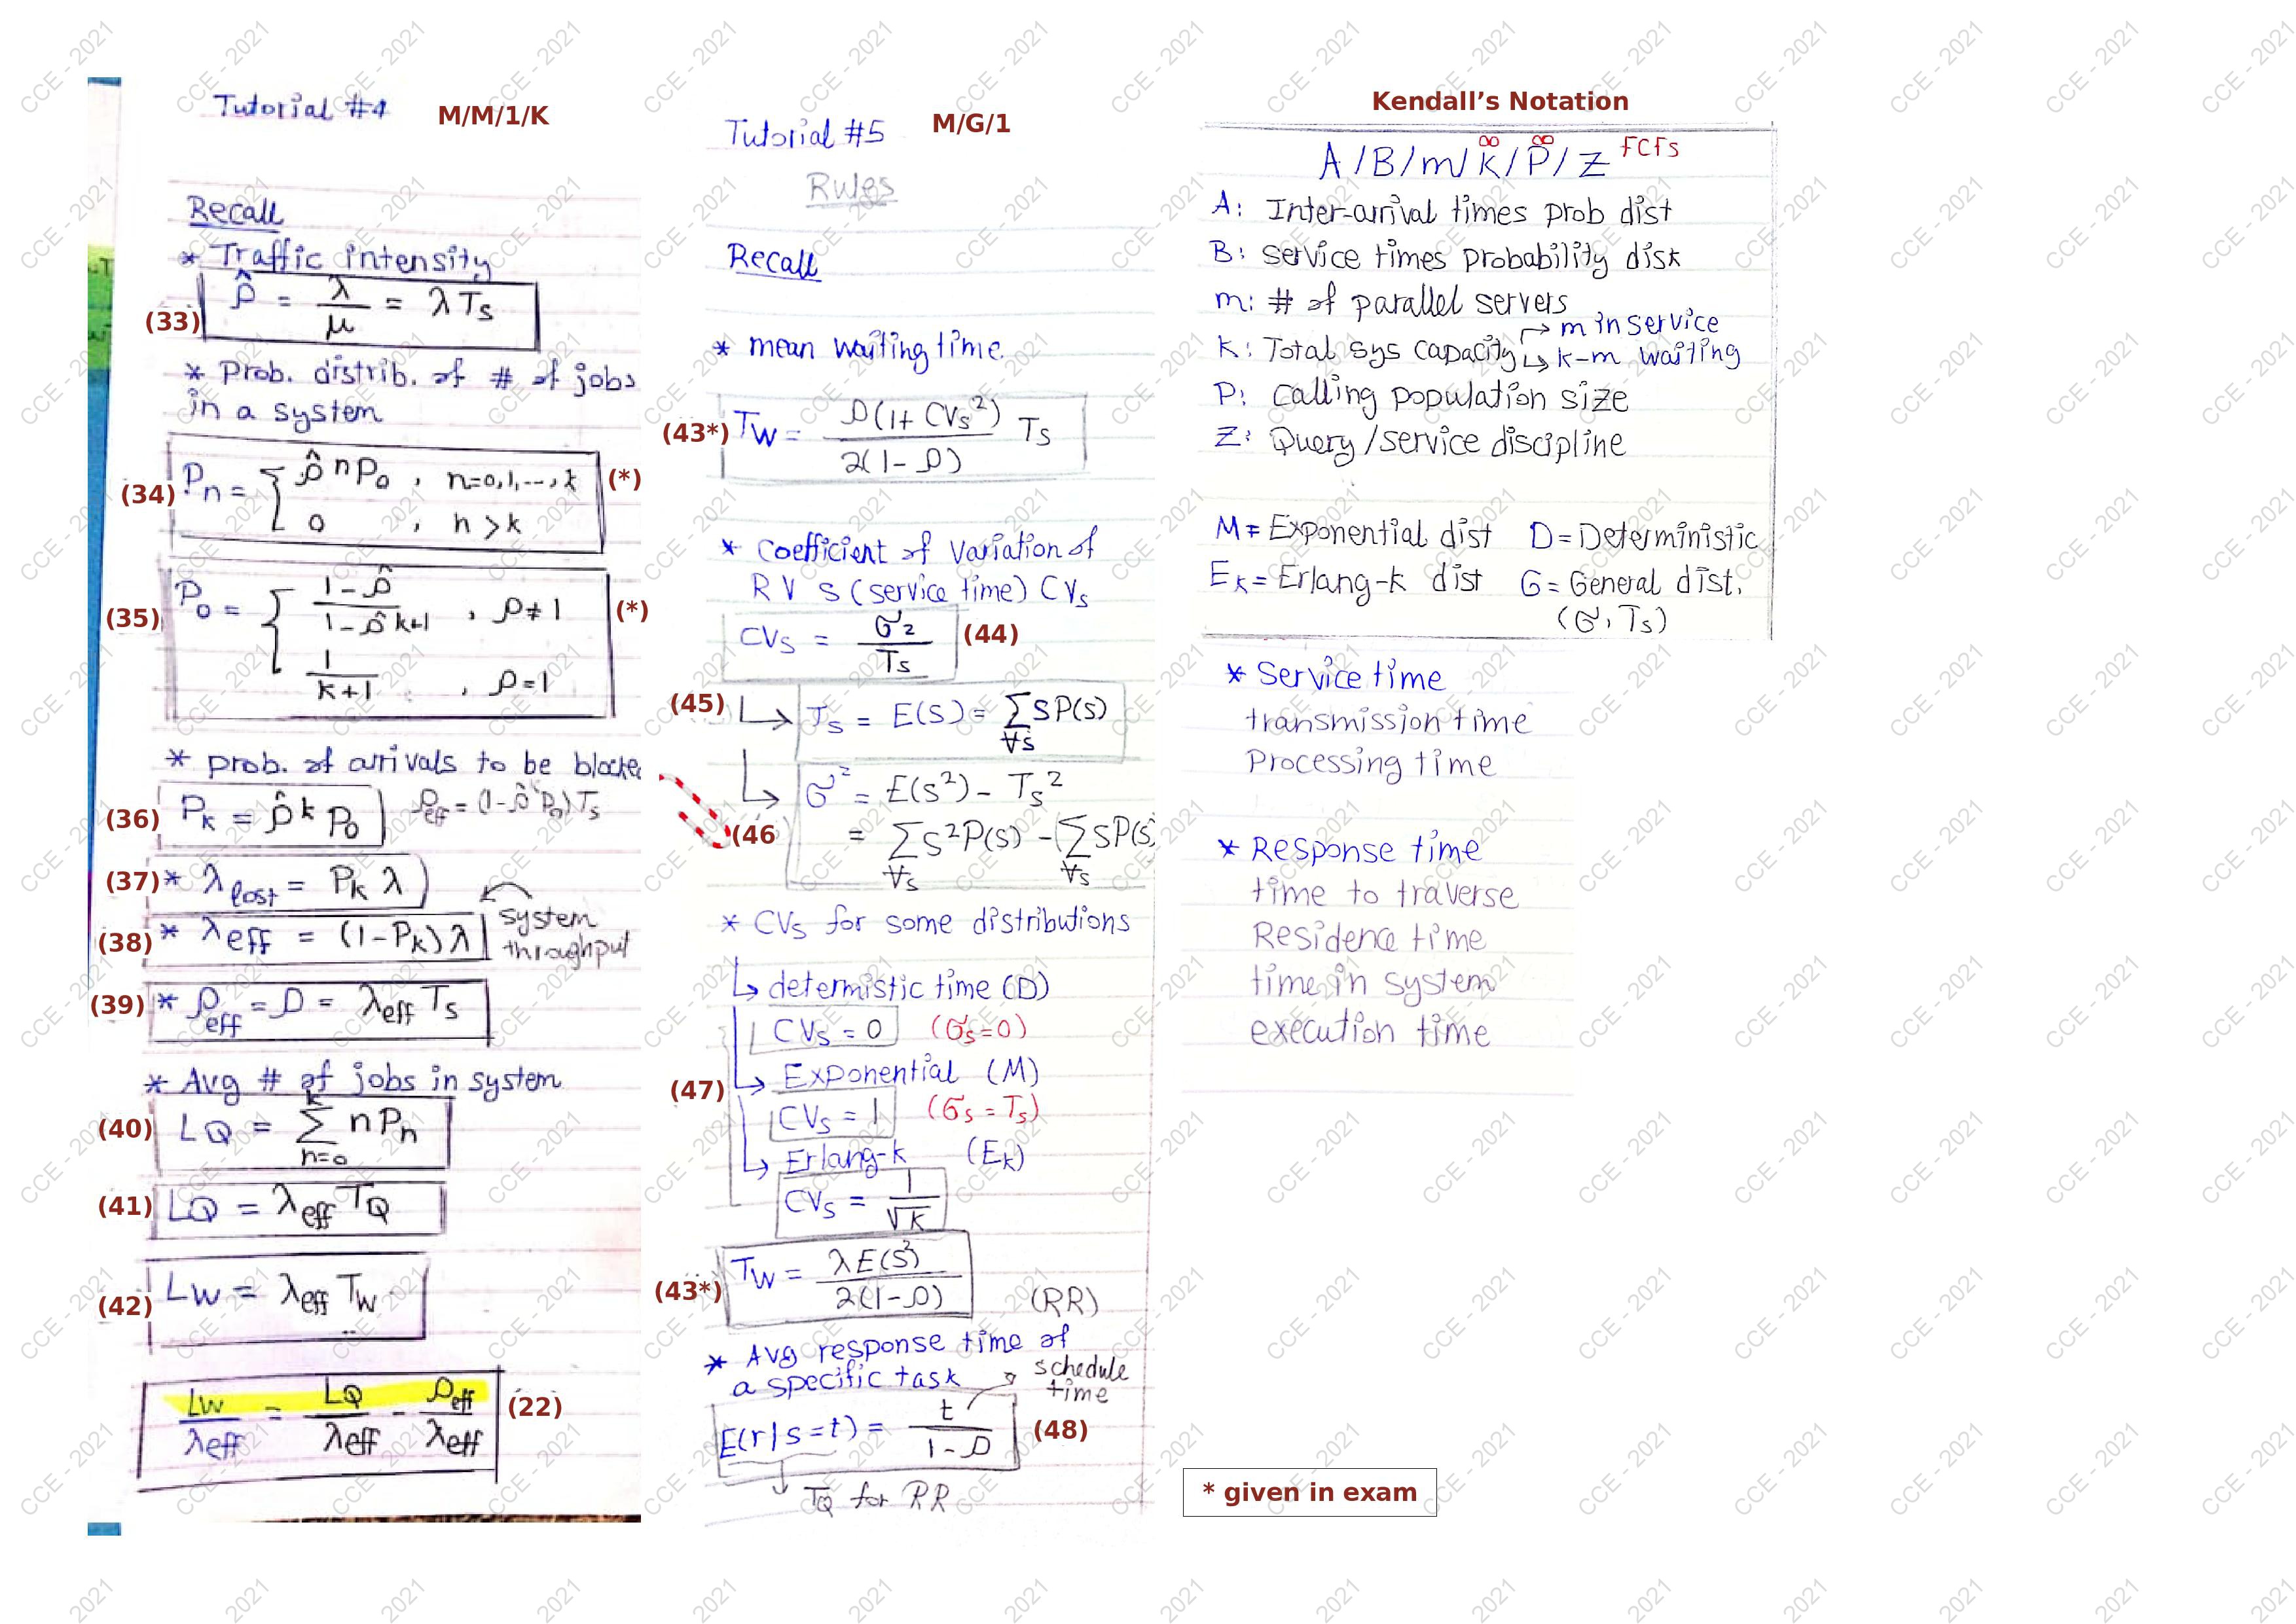 Tutorial #4 M/M/1/K
Recall
* Traffic intensity
(33) ρ̂ = λ/μ = λ Ts
* Prob. distrib. of # of jobs
in a system
(34) Pn = { ρ̂ n P0 , n=0,1,--,k (*)
0 , n > k
(35) P0 = { 1-ρ̂ / 1-ρ̂ k+1 , ρ≠1 (*)
1 / k+1 , ρ=1
* prob. of arrivals to be blocke
(36) Pk = ρ̂ k P0 ρeff = (1-ρ̂ k P0) Ts
(37) * λ lost = Pk λ
(38) * λeff = (1-Pk) λ system
throughput
(39) * ρeff = ρ = λeff Ts
* Avg # of jobs in system
(40) LQ = k Σ n=0 n Pn
(41) LQ = λeff TQ
(42) Lw = λeff Tw
Lw/λeff = LQ/λeff - ρeff/λeff (22)
Tutorial #5 M/G/1
Rules
Recall
* mean waiting time
(43*) Tw = ρ(1+ CVs²) / 2(1-ρ) Ts
* Coefficient of Variation of
RV S (service time) CVs
CVs = σ2 / Ts (44)
(45) ↳ Ts = E(S) = Σ∀s S P(s)
↳ σ² = E(s²) - Ts²
(46 = Σ∀s S² P(s) - (Σ∀s S P(s
* CVs for some distributions
↳ determistic time (D)
CVs = 0 (σs=0)
(47) ↳ Exponential (M)
CVs = 1 (σs = Ts)
↳ Erlang-k (Ek)
CVs = 1/√K
(43*) Tw = λ E(S²) / 2(1-ρ) (RR)
* Avg response time of
a specific task → schedule
time
E(r|s=t) = t / 1-ρ (48)
↓ TQ for RR
Kendall’s Notation
A / B / m / k ∞ / P ∞ / Z FCFs
A: Inter-arrival times prob dist
B: service times probability disk
m: # of parallel servers
K: Total sys capacity → m in service
↳ k-m waiting
P: Calling population size
Z: Query /service discipline
M = Exponential dist D = Deterministic
Ek = Erlang-k dist G = General dist.
(σ, Ts)
* Service time
transmission time
Processing time
* Response time
time to traverse
Residence time
time in system
execution time
* given in exam
CCE - 2021